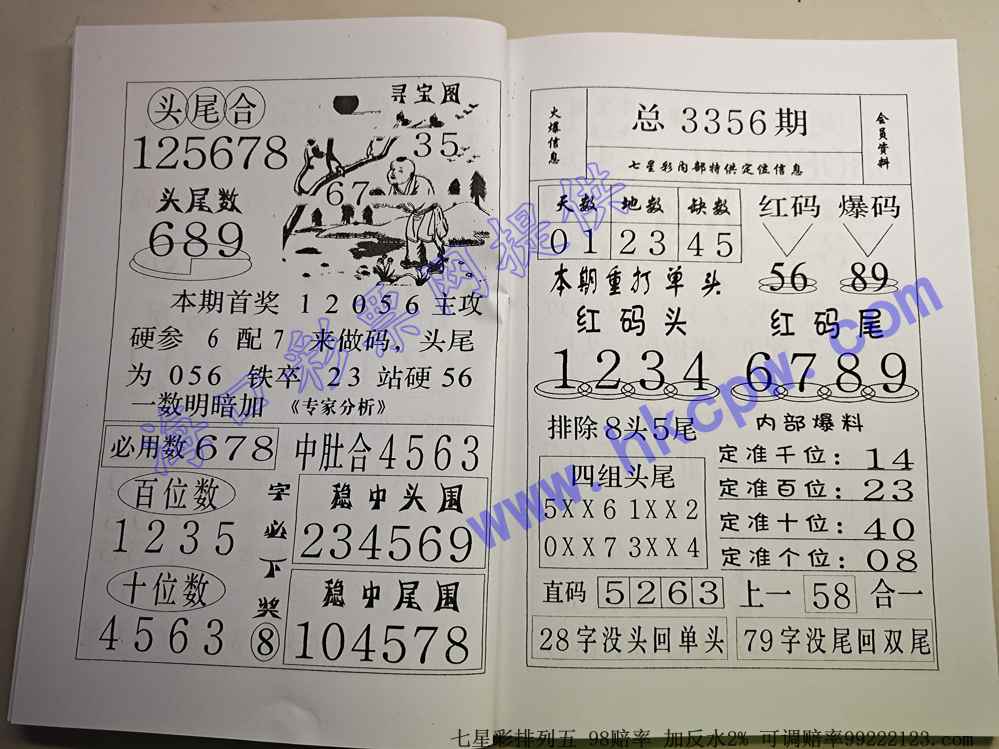 头尾合
125678
头尾数
689
寻宝图
35
67
本期首奖 12056 主攻
硬参 6 配 7 来做码，头尾
为 056 铁卒 23 站硬 56
一数明暗加 《专家分析》
必用数 678
中肚合 4563
百位数
1235
十位数
4563
字必下奖
8
稳中头围
234569
稳中尾围
104578
火爆信息
总 3356 期
七星彩内部特供定位信息
会员资料
天数 地数 缺数
01 23 45
红码 爆码
56 89
本期重打单头
红码头 红码尾
1234 6789
排除8头5尾
内部爆料
四组头尾
5XX6 1XX2
0XX7 3XX4
定准千位：14
定准百位：23
定准十位：40
定准个位：08
直码 5263 上一 58 合一
28字没头回单头
79字没尾回双尾
海口彩票网提供
www.hkcpw.com
七星彩排列五 98赔率 加反水2% 可调赔率99222123.com